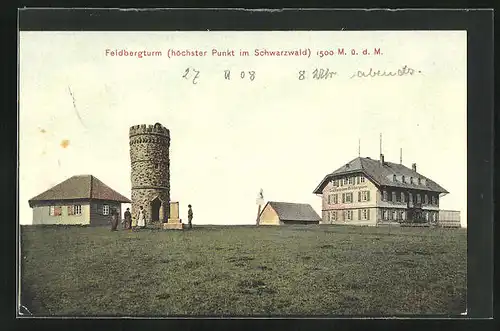 Feldbergturm (höchster Punkt im Schwarzwald) 1500 M. ü. d. M.
27 II 08 8 Uhr abends.